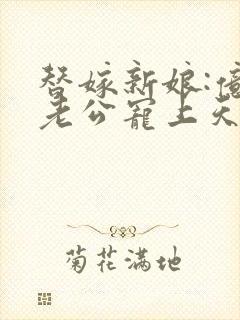 替嫁新娘:億
老公寵上天
菊花满地